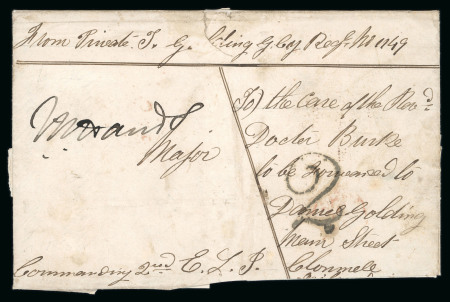 From Private T. G. lding G. Coy Regt. No 1149
To the Care of the Revd.
Docter Burke
to be forwarded to
Daniel Golding
Main Street
Clonmele
2
Major
Commanding 2nd E. L. I.